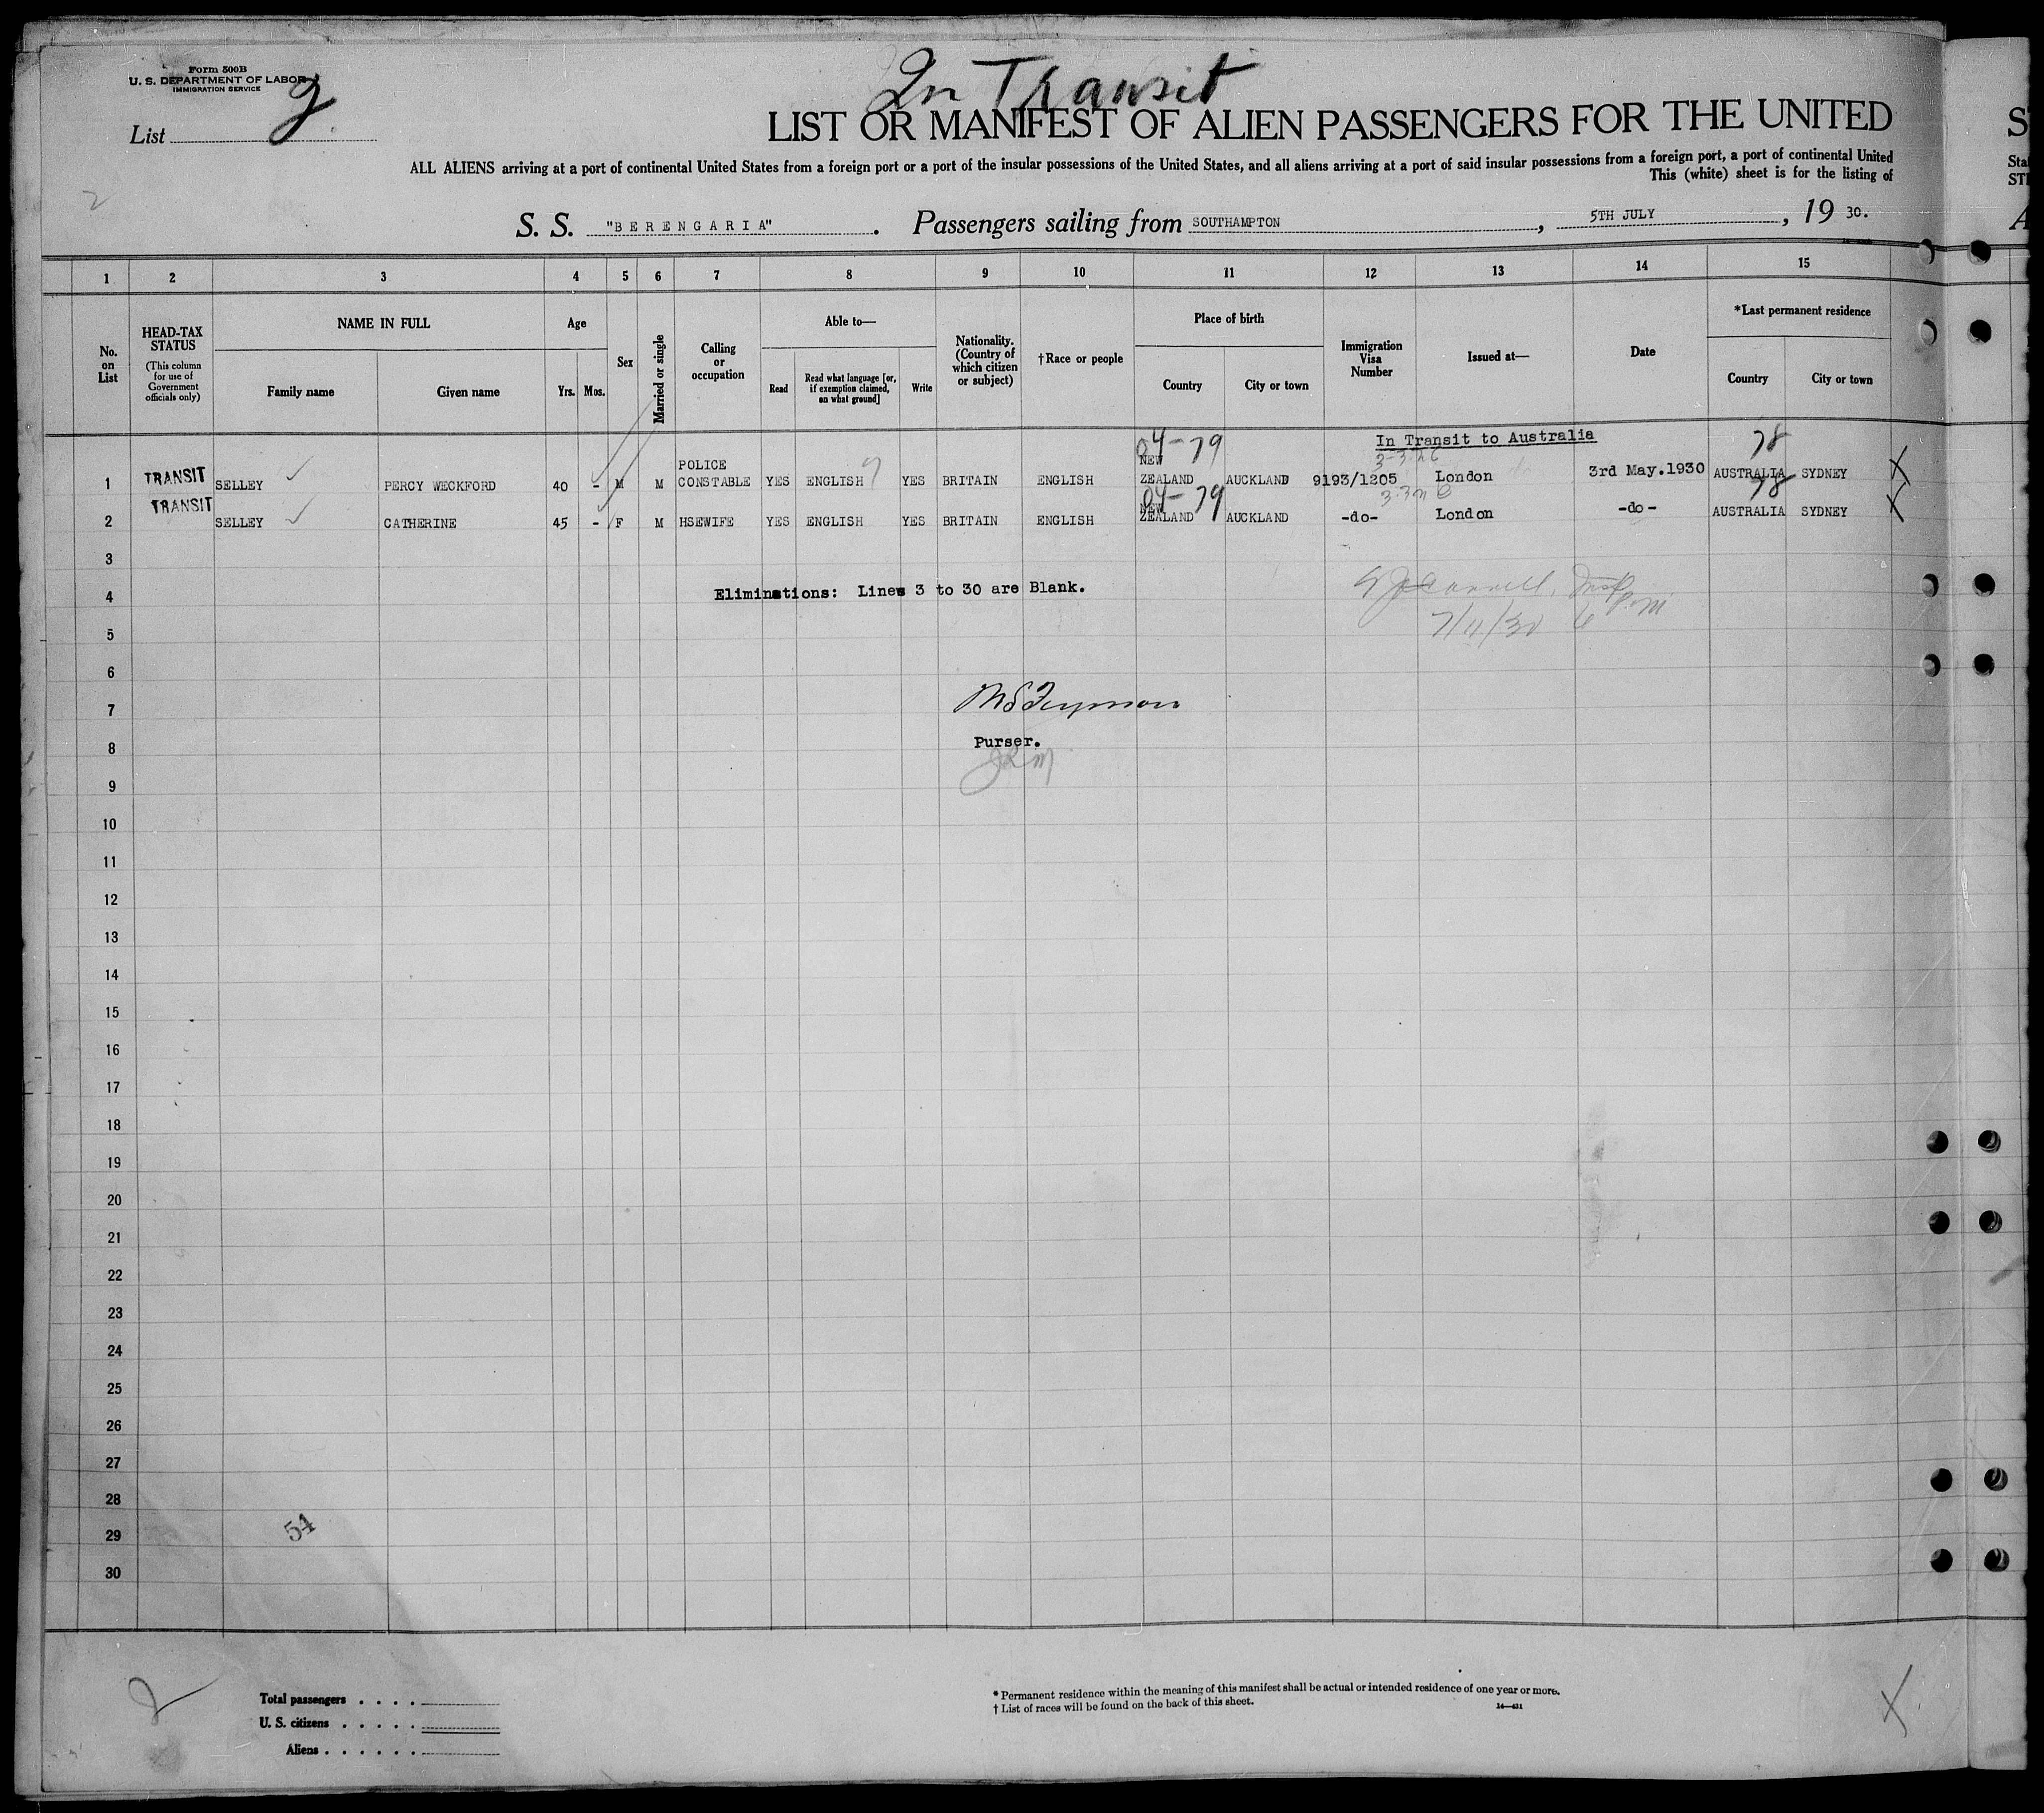 Form 500B
U. S. DEPARTMENT OF LABOR
IMMIGRATION SERVICE
In Transit
List
LIST OR MANIFEST OF ALIEN PASSENGERS FOR THE UNITED
ALL ALIENS arriving at a port of continental United States from a foreign port or a port of the insular possessions of the United States, and all aliens arriving at a port of said insular possessions from a foreign port, a port of continental United
This (white) sheet is for the listing of
S. S. "BERENGARIA". Passengers sailing from SOUTHAMPTON, 5TH JULY, 19 30.
1 2 3 4 5 6 7 8 9 10 11 12 13 14 15
No. on List
HEAD-TAX STATUS
(This column for use of Government officials only)
NAME IN FULL
Family name Given name
Age
Yrs. Mos.
Sex
Married or single
Calling or occupation
Able to—
Read
Read what language [or, if exemption claimed, on what ground]
Write
Nationality. (Country of which citizen or subject)
†Race or people
Place of birth
Country City or town
Immigration Visa Number
Issued at—
Date
*Last permanent residence
Country City or town
In Transit to Australia
04-79 78
1 TRANSIT SELLEY PERCY WECKFORD 40 - M M POLICE CONSTABLE YES ENGLISH YES BRITAIN ENGLISH NEW ZEALAND AUCKLAND 9193/1205 London 3rd May.1930 AUSTRALIA SYDNEY X
04-79 78
2 TRANSIT SELLEY CATHERINE 45 - F M HSEWIFE YES ENGLISH YES BRITAIN ENGLISH NEW ZEALAND AUCKLAND -do- London -do- AUSTRALIA SYDNEY X
3
4 Eliminations: Lines 3 to 30 are Blank.
5 7/11/30 6 P.M
6
7
8 Purser.
9
10
11
12
13
14
15
16
17
18
19
20
21
22
23
24
25
26
27
28
29 54
30
Total passengers . . . .
U. S. citizens . . . . .
Aliens . . . . . .
* Permanent residence within the meaning of this manifest shall be actual or intended residence of one year or more.
† List of races will be found on the back of this sheet.
14—431
X